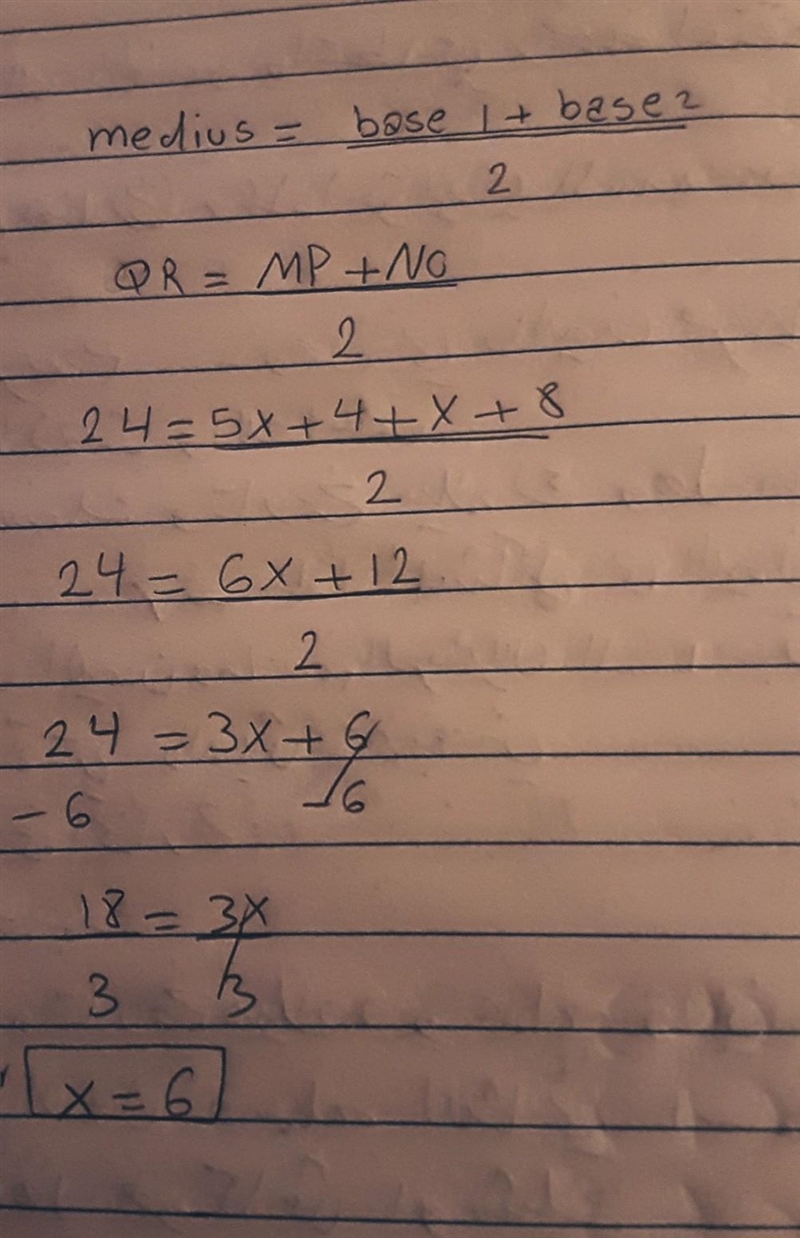 medius = base 1 + base 2
2
QR = MP + NO
2
24 = 5x + 4 + x + 8
2
24 = 6x + 12
2
24 = 3x + 6
- 6 - 6
18 = 3x
3 3
x = 6